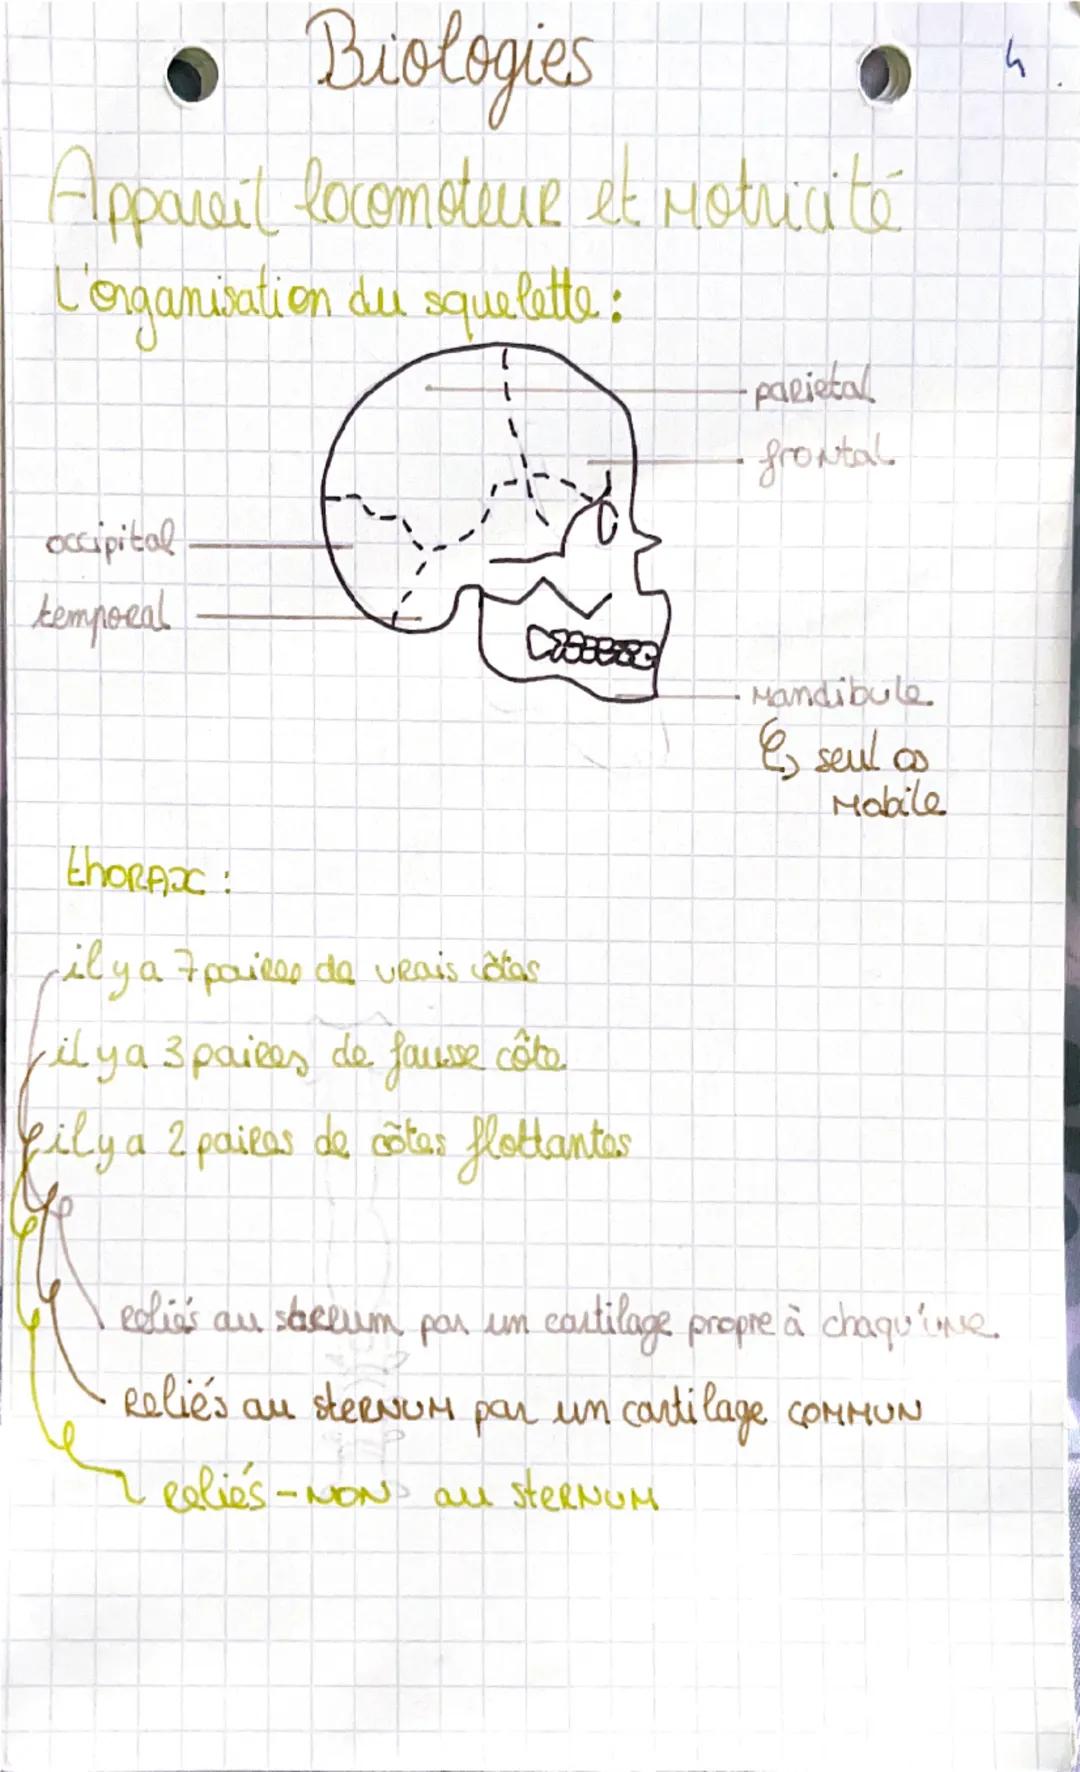 Biologies
Appareil locomoteur et Motricité
L'organisation du squelette :
parietal
frontal
occipital
temporal
Mandibule
↳ seul os
Mobile
thorax :
il y a 7 paires de vrais côtes
il y a 3 paires de fausse côte
il y a 2 paires de côtes flottantes
reliés au sternum par un cartilage propre à chaqu'une
Reliés au sternum par un cartilage commun
reliés - NON au sternum